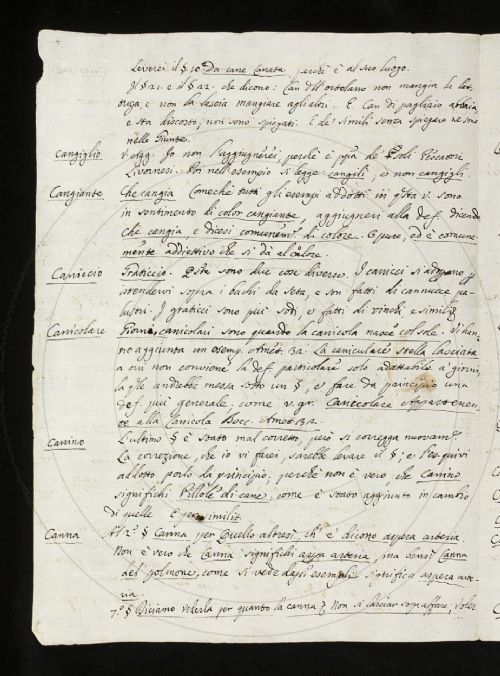 Leverei il §. 10 Da cane Canata, perchè è al suo luogo.
Il § 21. e il § 22. che dicono: Can dell'ortolano non mangia la lat-
tuga, e non la lascia mangiare agli altri. E Can di pagliaio abbaia
e sta discosto, non sono spiegati. E de' simili senza spiegare ne sono
nelle Giunte.
Cangiglio v. agg. Io non l'aggiugnerei, perchè è de' soli Pescatori
Livornesi. Poi nell'esempio si legge cangeli, e non cangigli.
Cangiante Che cangia. Comechè tutti gli esempi addotti in qsta v. sono
in sentimento di color cangiante, aggiugnerei alla def. dicendo
che cangia, e dicesi comunem. di colore. Oppure, ed è comune-
mente addiettivo che si dà al colore.
Canniccio Graticcio. Qste sono due cose diverse. I cannicci si adoprano p
istendervi sopra i bachi da seta, e son fatti di cannucce pa-
lustri. I graticci sono più sodi, e fatti di vinchi, e simili
Canicolare Giorni canicolari sono quando la canicola nasce col sole. Si han-
no aggiunta un esemp. Amet. 32. La caniculare stella lasciata
a cui non conviene la def. particolare solo adattabile a giorni,
la qle andrebbe messa sotto un §, e fare da principio una
def. più generale. come v. gr. Canicolare Appartenen-
te alla Canicola Bocc. Amet. 32.
Canino L'ultimo § è stato mal corretto, però si corregga nuovam.
La correzione, che io vi farei, sarebbe levare il §; e l'es. quivi
addotto porlo da principio, perchè non è vero, che Canino
significhi Pillole di cane, come è stato aggiunto in cambio
di quelle E per similit.
Canna Al 2.° § Canna per Quello altresì, ch' e' dicono aspera arteria.
Non è vero che Canna significhi aspera arteria, ma bensì Canna
del polmone, come si vede dagli esempli significa aspera arte-
ria.
7.° § Diciamo volerla per quanto la canna Non si lasciar sopraffare, voler